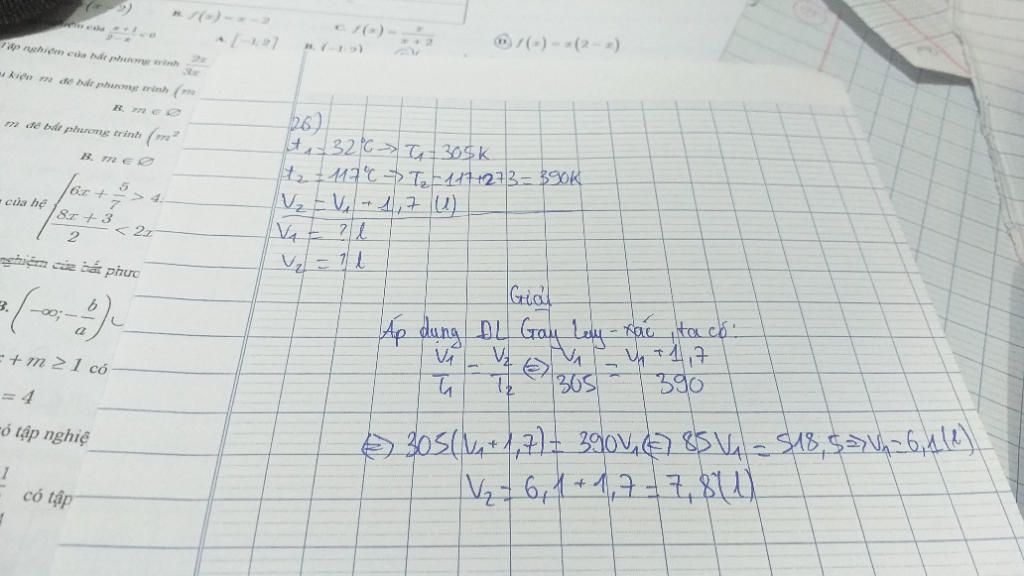 B. f(x) = x - 2
C. f(x) = x/(x+2)
D. f(x) = x(2-x)
nghiệm của (x+1)/(2-x) < 0
A. [-1;2]
B. (-1;2)
Tập nghiệm của bất phương trình 2x/3x
kiện m để bất phương trình (m
B. m ∈ ∅
m để bất phương trình (m²
B. m ∈ ∅
của hệ { 6x + 5/7 > 4
(8x + 3)/2 < 2x
nghiệm của bất phươ
B. (-∞; -b/a)
+ m ≥ 1 có
= 4
ó tập nghiệ
có tập
26)
t₁ = 32°C → T₁ = 305K
t₂ = 117°C → T₂ = 117+273 = 390K
V₂ = V₁ + 1,7 (l)
V₁ = ? l
V₂ = ? l
Giải
Áp dụng ĐL Gay Luy-xác, ta có:
V₁/T₁ = V₂/T₂ ⇔ V₁/305 = (V₁ + 1,7)/390
⇔ 305(V₁+1,7) = 390V₁ ⇔ 85V₁ = 518,5 ⇒ V₁ = 6,1(l)
V₂ = 6,1 + 1,7 = 7,8(l)